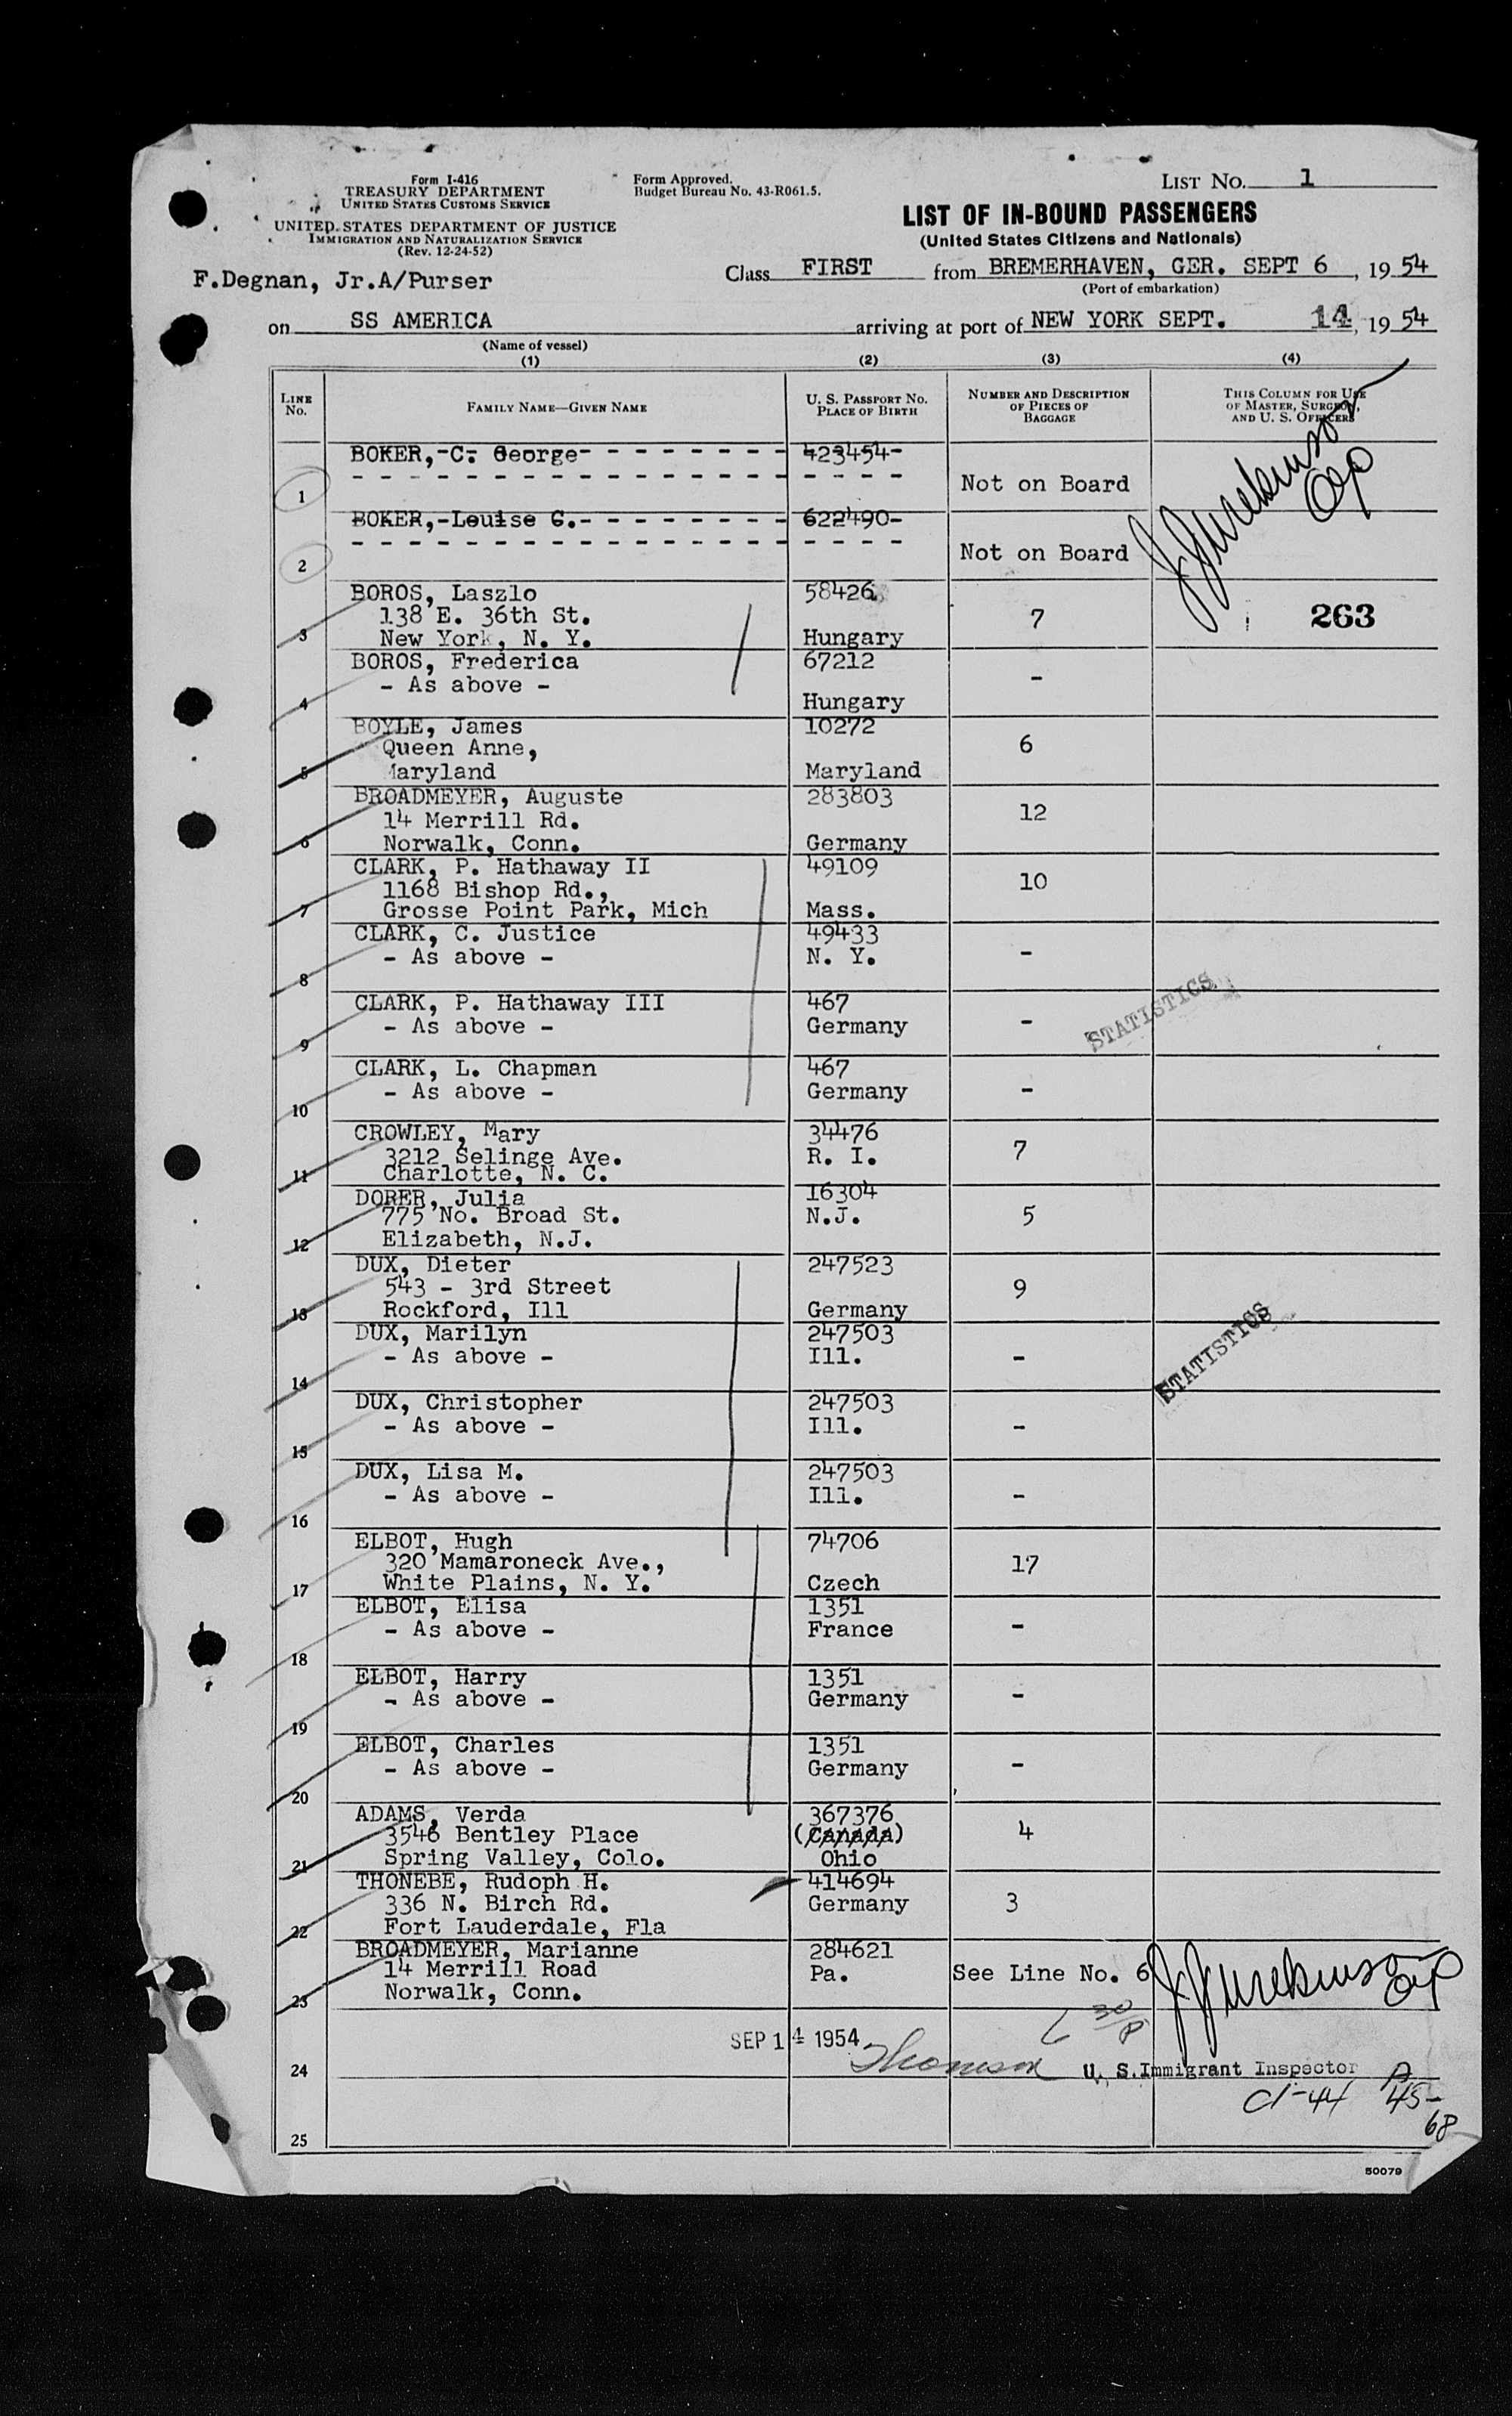 Form I-416
TREASURY DEPARTMENT
UNITED STATES CUSTOMS SERVICE
UNITED STATES DEPARTMENT OF JUSTICE
IMMIGRATION AND NATURALIZATION SERVICE
(Rev. 12-24-52)
Form Approved.
Budget Bureau No. 43-R061.5.
LIST NO. 1
LIST OF IN-BOUND PASSENGERS
(United States Citizens and Nationals)
F.Degnan, Jr.A/Purser
Class FIRST from BREMERHAVEN, GER. SEPT 6, 1954
(Port of embarkation)
on SS AMERICA arriving at port of NEW YORK SEPT. 14, 1954
(Name of vessel)
(1) (2) (3) (4)
LINE No.
FAMILY NAME—GIVEN NAME
U. S. PASSPORT NO.
PLACE OF BIRTH
NUMBER AND DESCRIPTION
OF PIECES OF
BAGGAGE
THIS COLUMN FOR USE
OF MASTER, SURGEON,
AND U. S. OFFICERS
BOKER,-C. George- - - - - - - - 423454-
- - - - - - - - - - - - - - - - - - - - -
1 Not on Board
BOKER,-Louise G.- - - - - - - - 622490-
- - - - - - - - - - - - - - - - - - - - -
2 Not on Board
BOROS, Laszlo 58426
138 E. 36th St. 7 263
3 New York, N. Y. Hungary
BOROS, Frederica 67212
- As above - -
4 Hungary
BOYLE, James 10272
Queen Anne, 6
5 Maryland Maryland
BROADMEYER, Auguste 283803
14 Merrill Rd. 12
6 Norwalk, Conn. Germany
CLARK, P. Hathaway II 49109
1168 Bishop Rd., 10
7 Grosse Point Park, Mich Mass.
CLARK, C. Justice 49433
- As above - N. Y. -
8
CLARK, P. Hathaway III 467
- As above - Germany -
STATISTICS
9
CLARK, L. Chapman 467
- As above - Germany -
10
CROWLEY, Mary 34476
3212 Selinge Ave. R. I. 7
11 Charlotte, N. C.
DORER, Julia 16304
775 No. Broad St. N.J. 5
12 Elizabeth, N.J.
DUX, Dieter 247523
543 - 3rd Street 9
13 Rockford, Ill Germany
DUX, Marilyn 247503
- As above - Ill. -
STATISTICS
14
DUX, Christopher 247503
- As above - Ill. -
15
DUX, Lisa M. 247503
- As above - Ill. -
16
ELBOT, Hugh 74706
320 Mamaroneck Ave., 17
17 White Plains, N. Y. Czech
ELBOT, Elisa 1351
- As above - France -
18
ELBOT, Harry 1351
- As above - Germany -
19
ELBOT, Charles 1351
- As above - Germany -
20
ADAMS, Verda 367376
3546 Bentley Place (Canada) 4
21 Spring Valley, Colo. Ohio
THONEBE, Rudoph H. 414694
336 N. Birch Rd. Germany 3
22 Fort Lauderdale, Fla
BROADMEYER, Marianne 284621
14 Merrill Road Pa. See Line No. 6
23 Norwalk, Conn.
SEP 14 1954
24 U. S.Immigrant Inspector
45-
68
25
50079